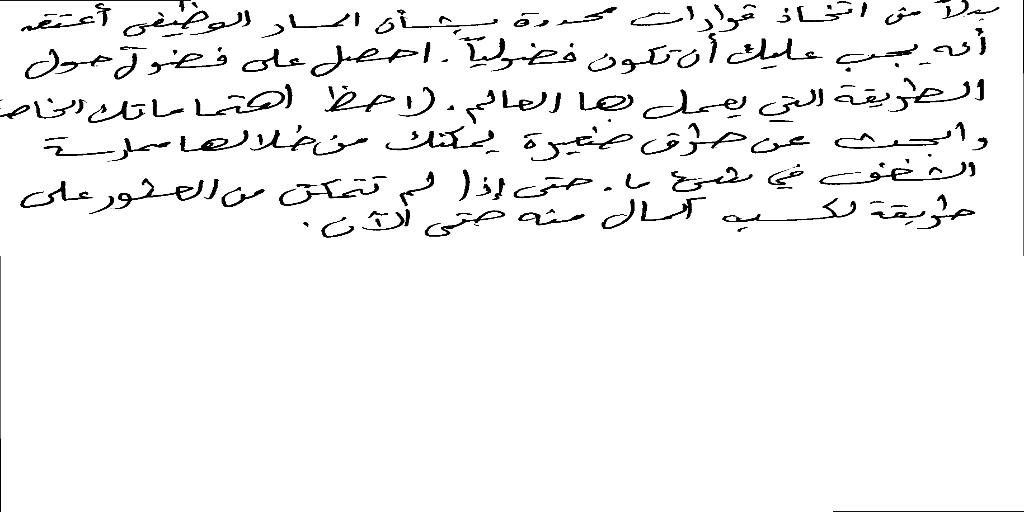 بدلاً من اتخاذ قرارات محددة بشأن المسار الوظيفي أعتقد
أنه يجب عليك أن تكون فضولياً. احصل على فضول حول
الطريقة التي يعمل بها العالم. لاحظ اهتماماتك الخاصة
وابحث عن طرق صغيرة يمكنك من خلالها ممارسة
الشغف في شيء ما. حتى إذا لم تتمكن من العثور على
طريقة لكسب المال منه حتى الآن.